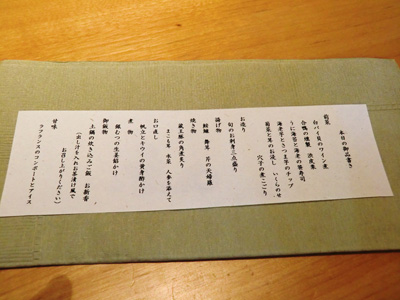 本日の御品書き
前菜
白バイ貝のワイン煮
合鴨の燻製　渋皮栗
うに海苔と海老の笹寿司
海老芋とさつま芋のチップ
菊菜と茸のお浸し　いくらのせ
穴子の煮こごり
お造り
旬のお刺身三点盛り
揚げ物
舞茸　芹の天婦羅
焼き物
蔵王豚の角煮炙り
人参を添えて
お口直し
帆立とキウイの黄身酢かけ
煮物
銀むつの生姜餡かけ
御飯物
土鍋の炊き込みご飯　お新香
（出し汁を入れお茶漬け風で
お召し上がりください）
甘味
ラフランスのコンポートとアイス